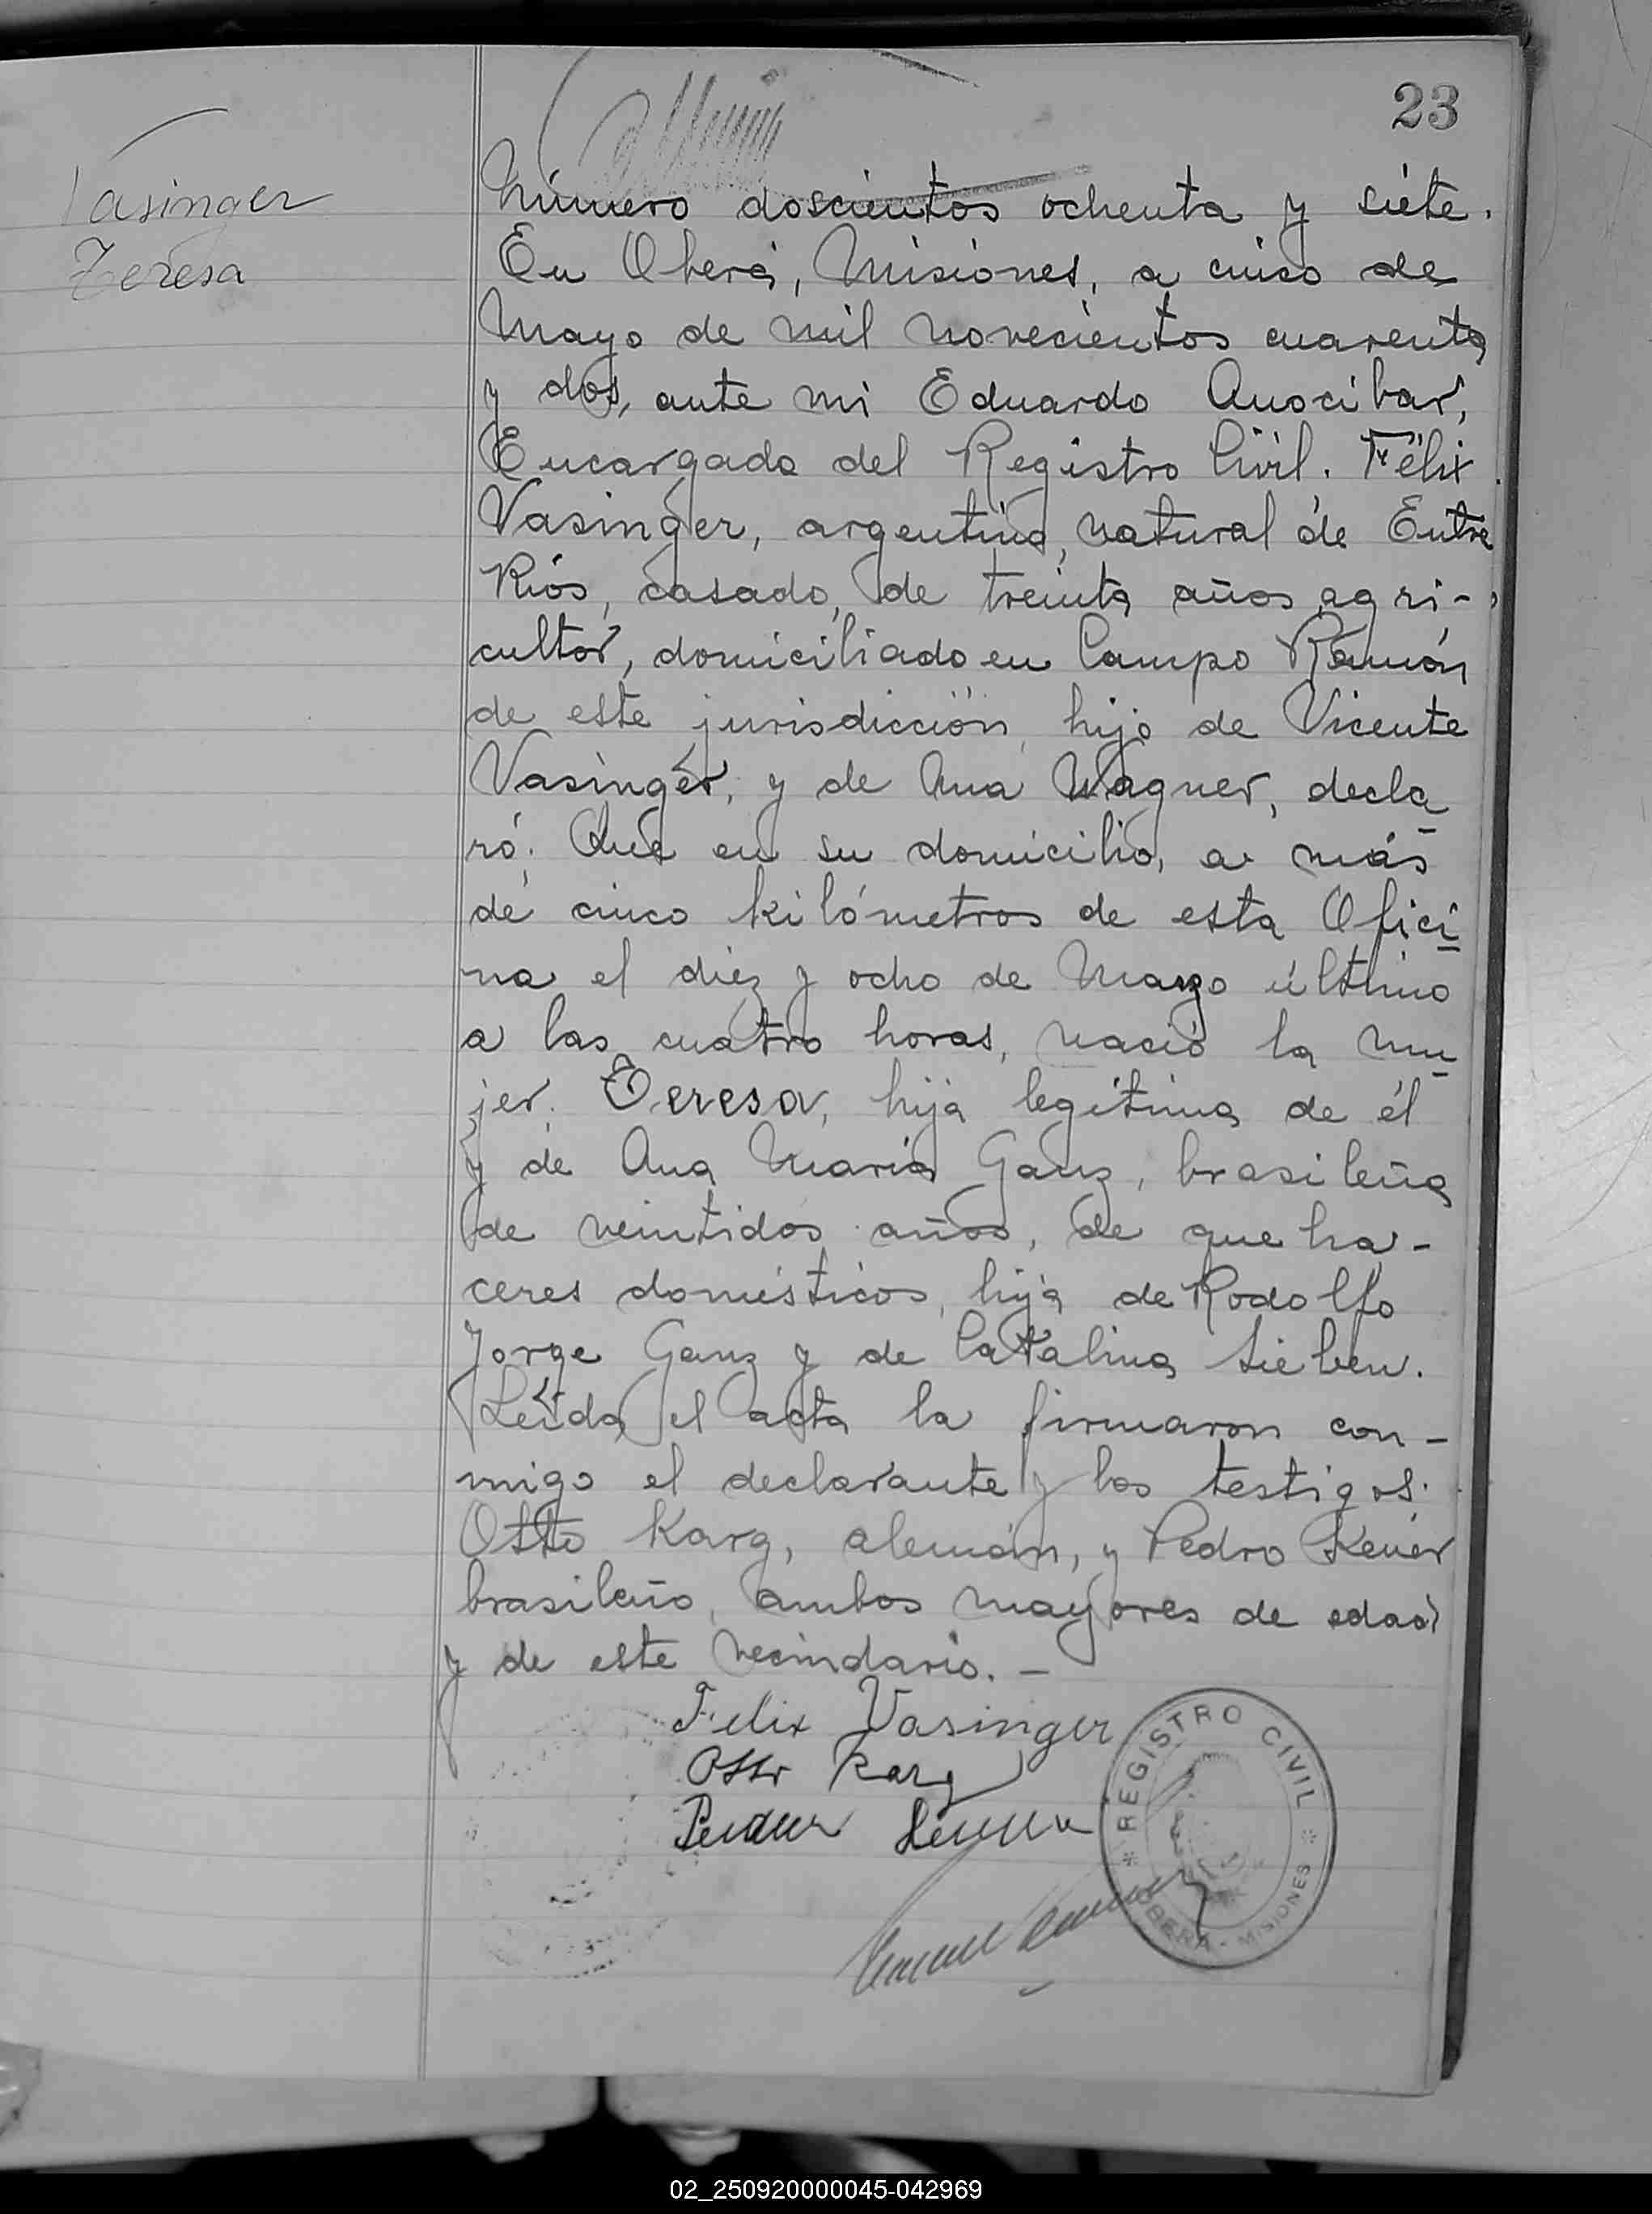 23
Vasinger
Teresa
Número doscientos ochenta y siete.
En Oberá, Misiones, a cinco de
Mayo de mil novecientos cuarenta
y dos, ante mi Eduardo Anocibar,
Encargado del Registro Civil. Félix
Vasinger, argentino, natural de Entre
Ríos, casado, de treinta años, agri-
cultor, domiciliado en Campo Ramón
de este jurisdicción, hijo de Vicente
Vasinger, y de Ana Wagner, decla
ró: Que en su domicilio, a más
de cinco kilómetros de esta Ofici
na el diez y ocho de Marzo último
a las cuatro horas, nació la mu
jer. Teresa, hija legítima de él
y de Ana María Ganz, brasileña
de veintidos años, de que ha-
ceres domésticos, hija de Rodolfo
Jorge Ganz y de Catalina Sieben.
Leída el acta la firmaron con-
migo el declarante y los testigos:
Otto Karg, alemán, y Pedro
brasileño, ambos mayores de edad
y de este vecindario. -
Felix Vasinger
Otto Karg
REGISTRO CIVIL
OBERÁ - MISIONES
02_250920000045-042969